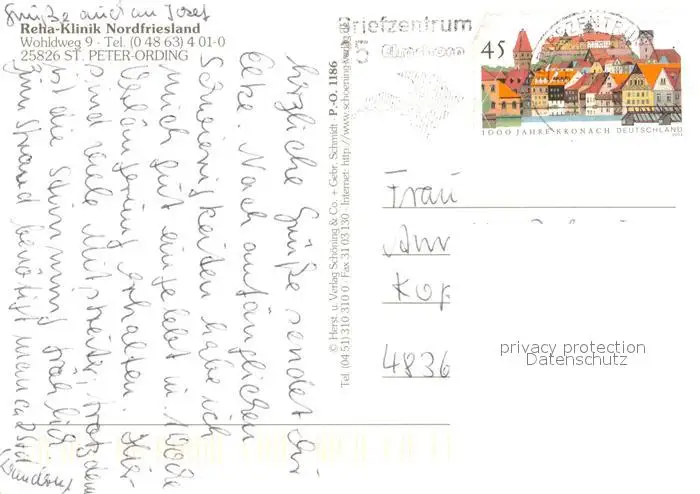 Grüße auch an Josef
Reha-Klinik Nordfriesland
Wohldweg 9 - Tel. (0 48 63) 4 01-0
25826 ST. PETER-ORDING
herzliche Grüße sendet dir
Elke. Nach anfänglichen
Schwierigkeiten habe ich
mich gut eingelebt u. 1 Woche
Verlängerung erhalten. Hier
sind viele Mitstreiter, trotzdem
ist die Stimmung fröhlich
zum Strand benötigt man ca 2 Std
© Herst. u. Verlag Schöning & Co. + Gebr. Schmidt P.-O. 1186
Tel. (04 51) 310 310 0 · Fax 31 03 130 · Internet: http://www.schoening-verlag.de
Briefzentrum
45
1000 JAHRE KRONACH DEUTSCHLAND
Frau
Kop
4836
privacy protection
Datenschutz